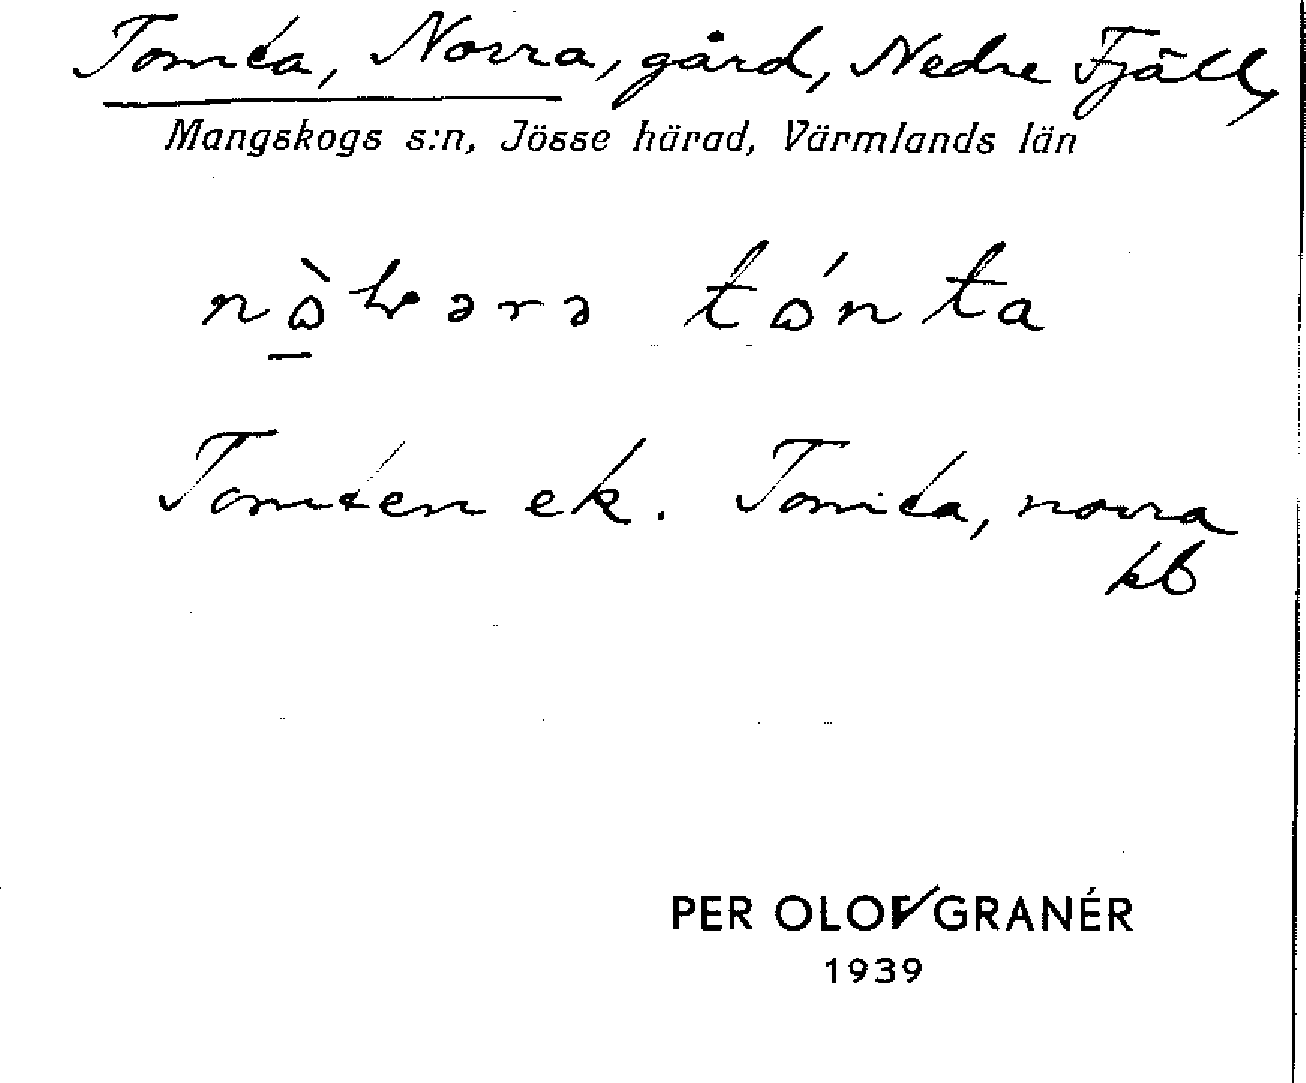 Toméa, Norra, gård, Nedre Fjäll,
Mangskogs s:n, Jösse härad, Värmlands län
tónta
Toméen ek. Toméa, norra
kb
PER OLOF GRANÉR
1939